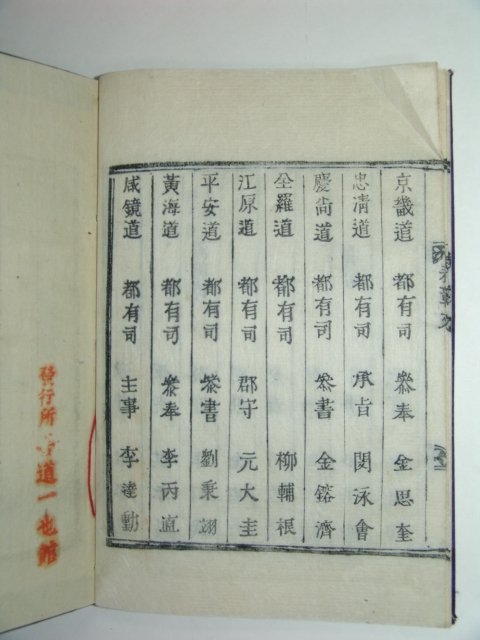 京畿道 都有司 叅奉 金思奎
忠淸道 都有司 承旨 閔泳會
慶尙道 都有司 叅書 金鎔濟
全羅道 都有司 柳輔根
江原道 都有司 郡守 元大圭
平安道 都有司 叅書 劉秉翊
黃海道 都有司 叅奉 李丙直
咸鏡道 都有司 主事 李達勳
發行所 道一也館